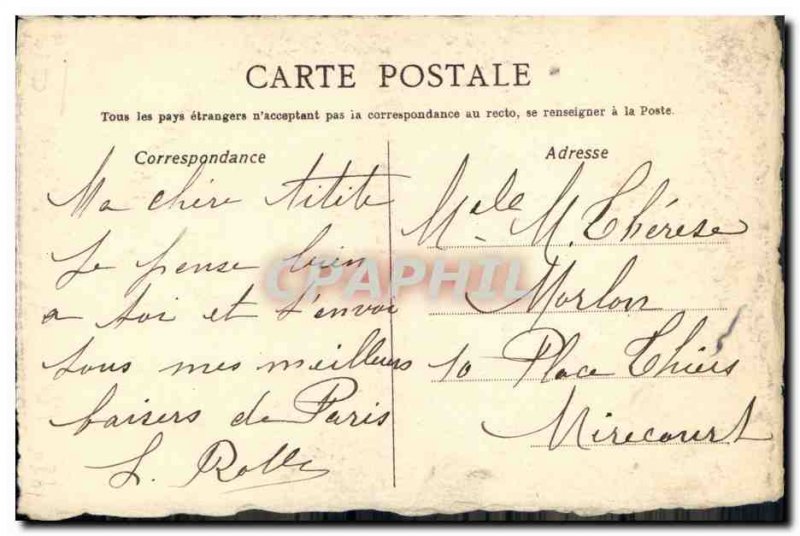 CARTE POSTALE
Tous les pays étrangers n'acceptant pas la correspondance au recto, se renseigner à la Poste.
Correspondance
Ma chère Titite
Je pense bien
a toi et t'envoi
tous mes meilleurs
baisers de Paris
Adresse
Mele M. Thérèse
Morlon
10 Place Thiers
Mirecourt
CPAPHIL